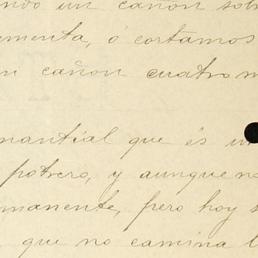 ndo un cañon sob
ementa, ó cortamos
n cañon cuatro m
nantial que és un
potrero, y aunque no
manente, pero hoy s
que no camina l